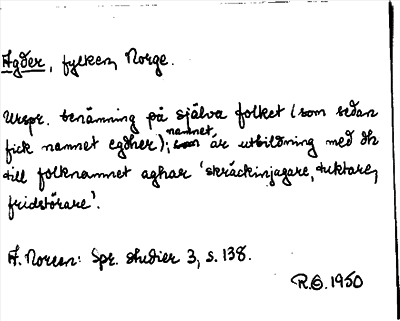 Agder, fylken, Norge.
Urspr. benämning på själva folket (som sedan
fick namnet egðher); namnet är utbildning med dh
till folknamnet aghar 'skräckinjagare, tuktare,
fridstörare'.
A. Noreen: Spr. studier 3, s. 138.
R.O. 1950